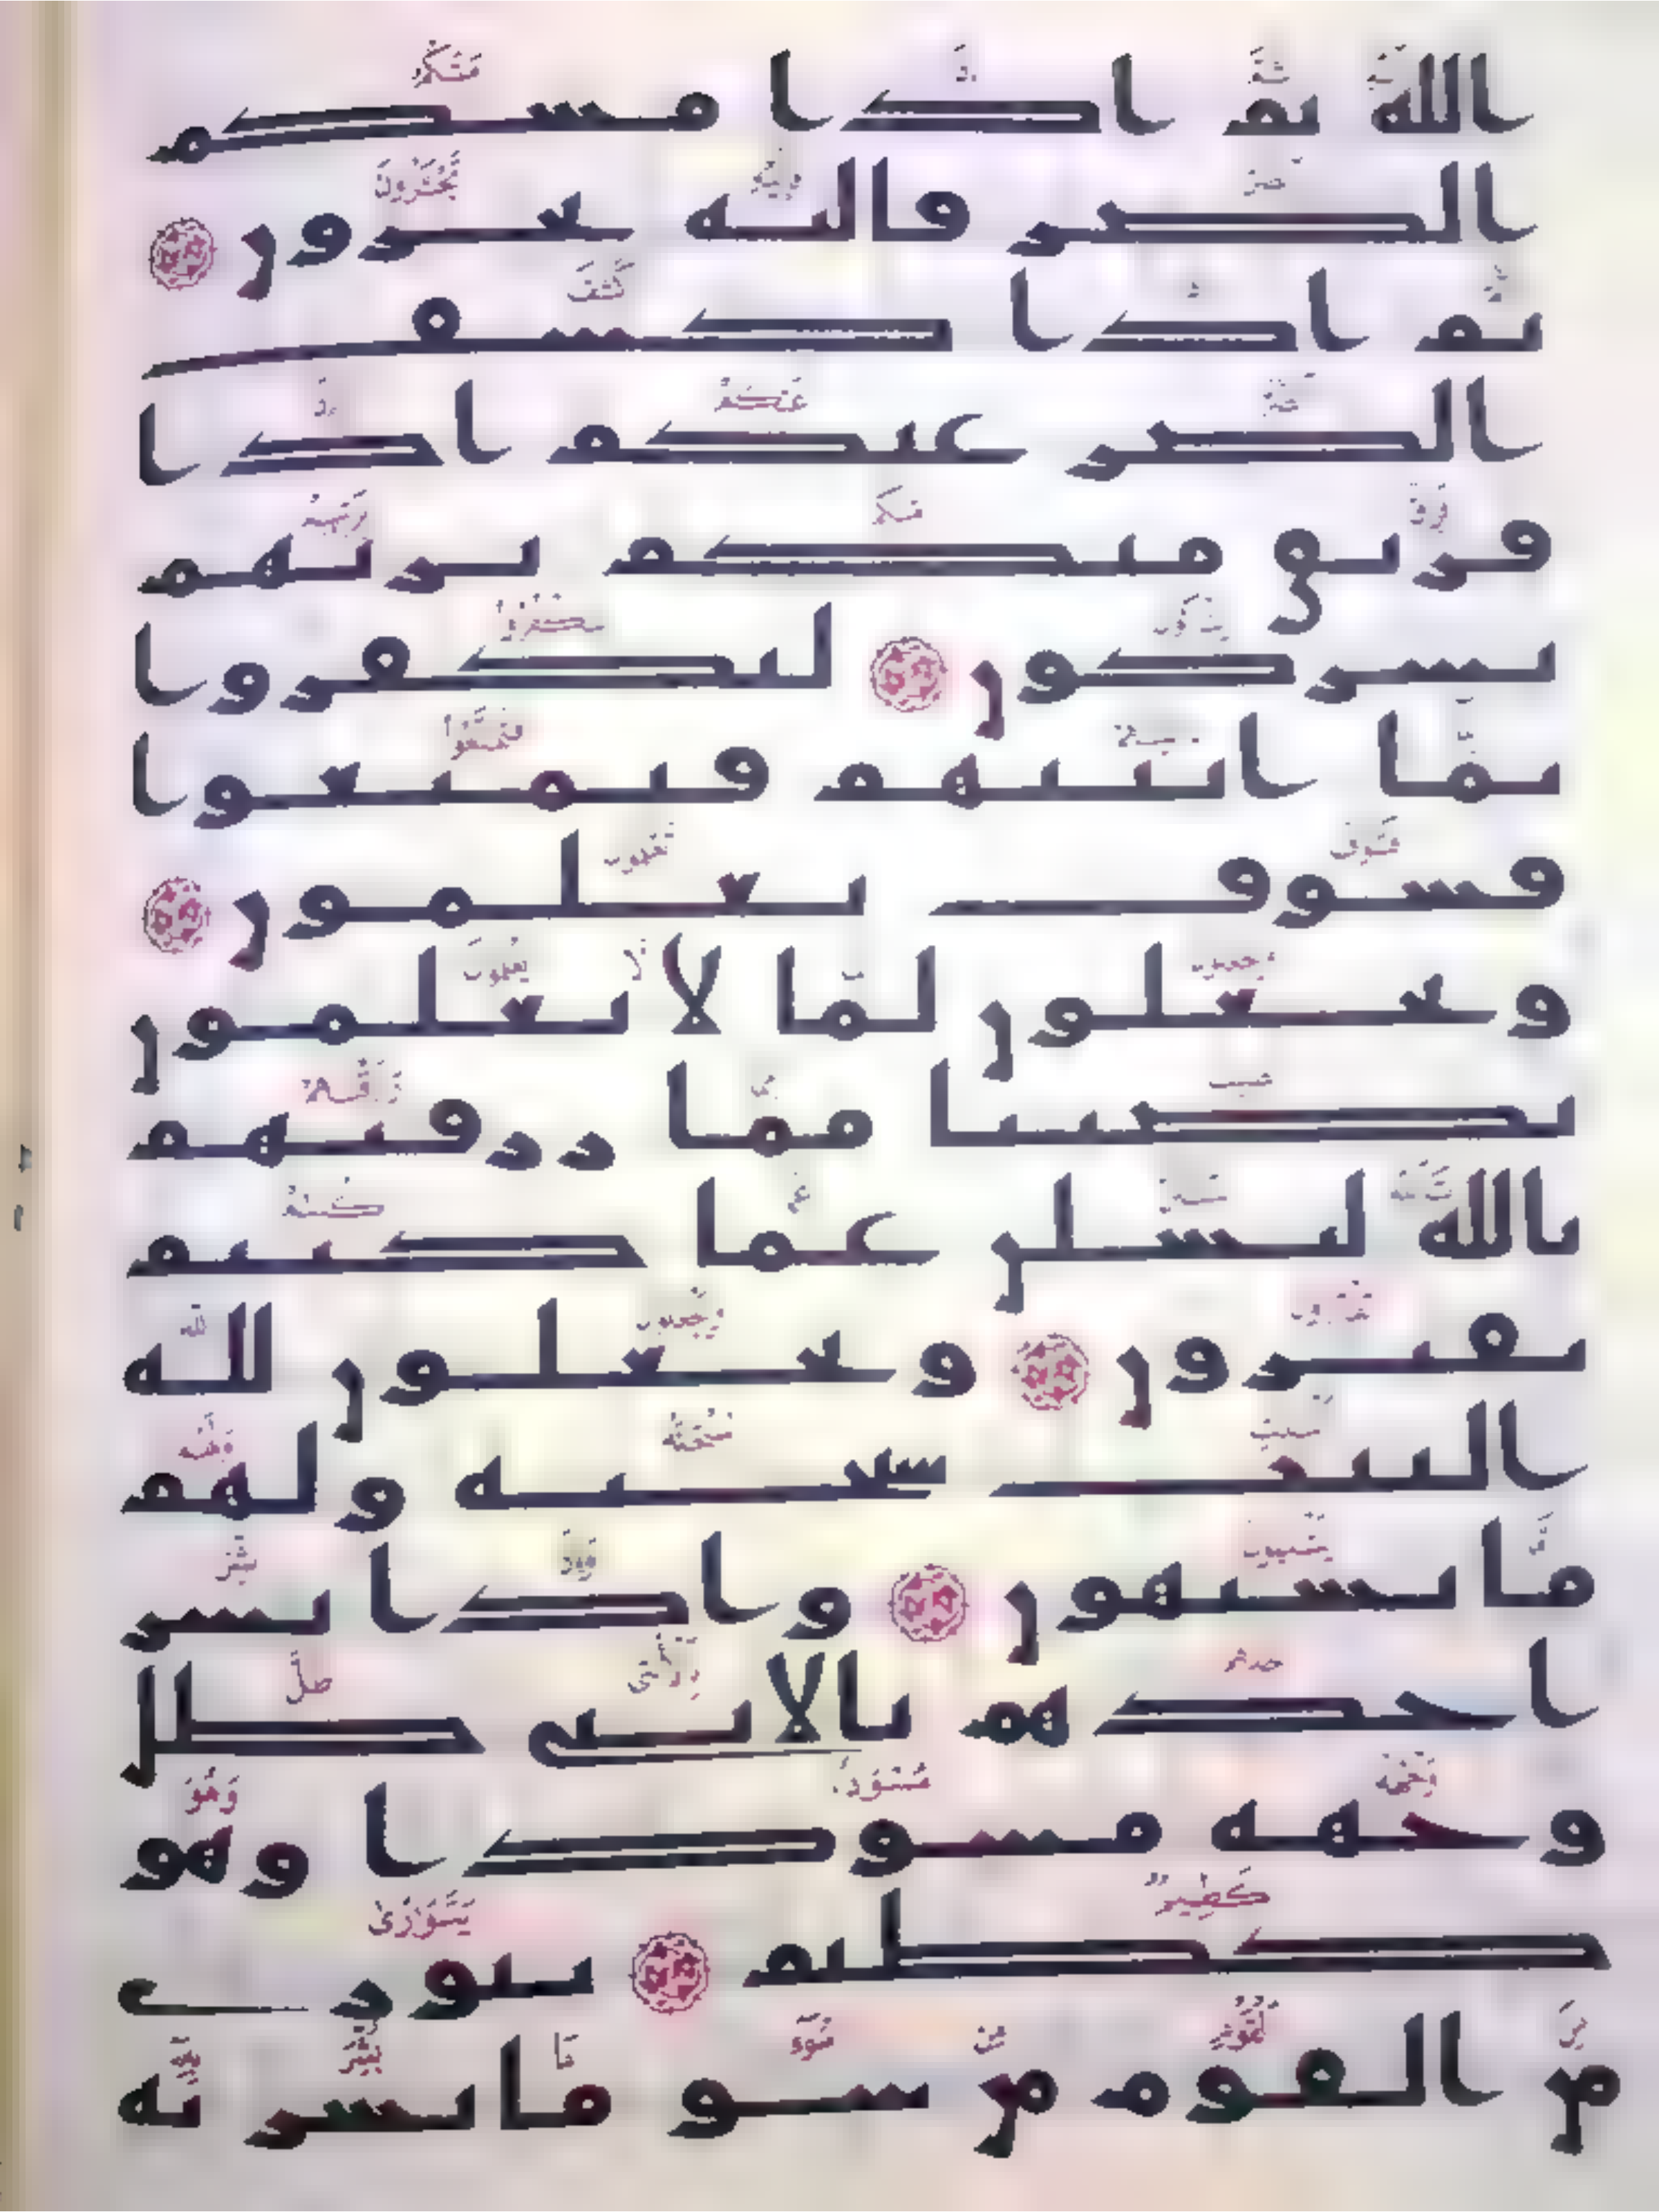 الله ثم اذا مسكم
الضر فاليه تجرون
ثم اذا كشف
الضر عنكم اذا
فريق منكم بربهم
يشركون ليكفروا
بما اتينهم فتمتعوا
فسوف تعلمون
ويجعلون لما لا يعلمون
نصيبا مما رزقنهم
تالله لتسلن عما كنتم
تفترون ويجعلون لله
البنت سبحنه ولهم
ما يشتهون واذا بشر
احدهم بالانثى ظل
وجهه مسودا وهو
كظيم يتورى
من القوم من سو ما بشر به